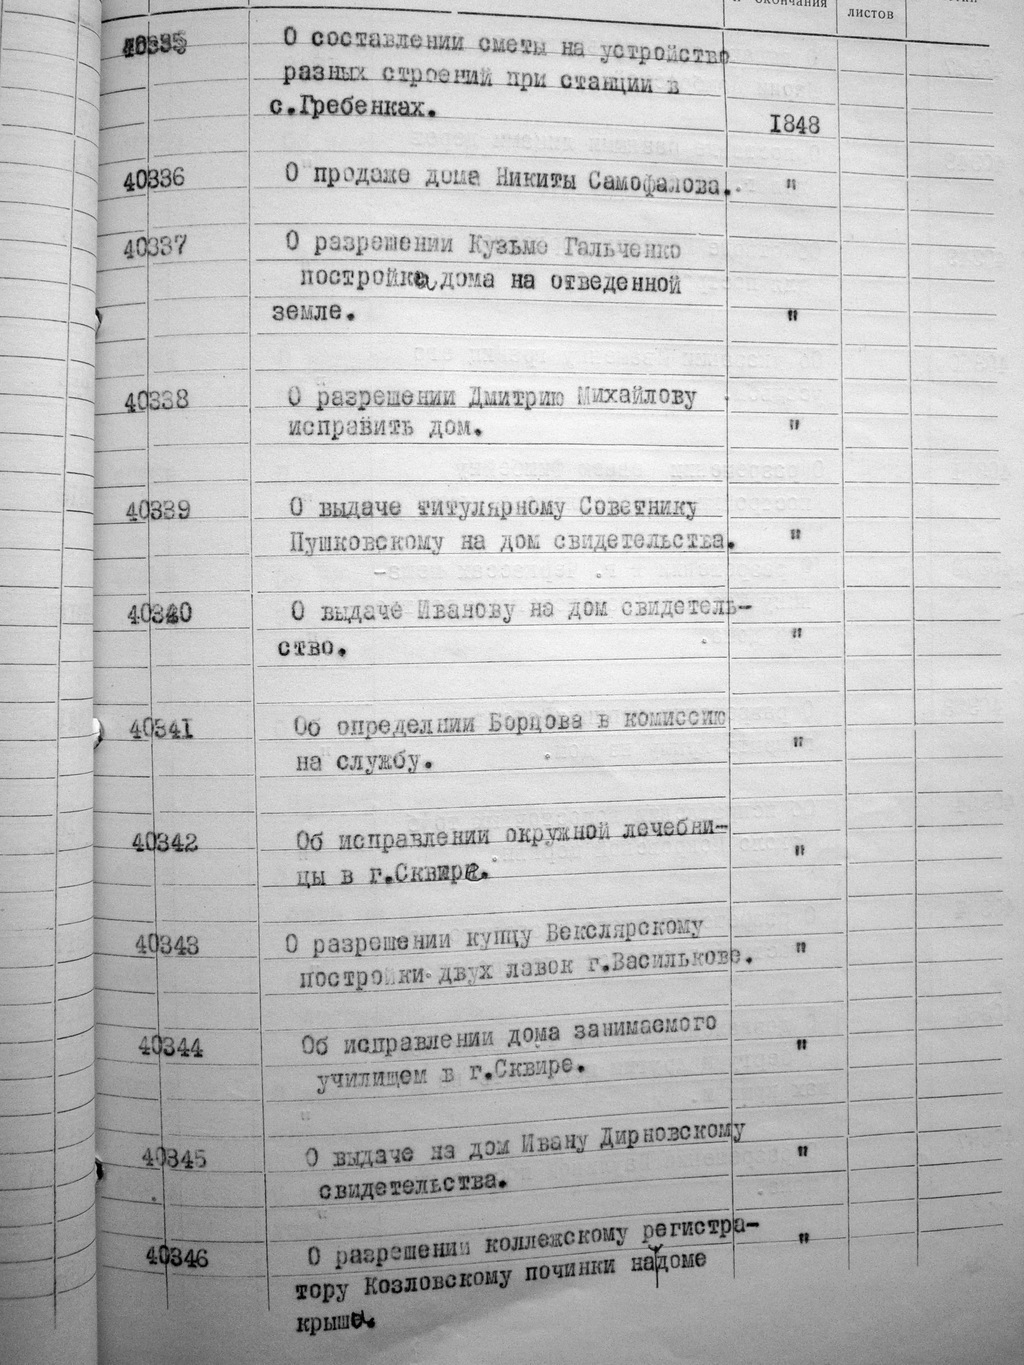 и окончания
листов
40335 О составлении сметы на устройство
разных строений при станции в
с.Гребенках.
1848
40336 О продаже дома Никиты Самофалова. "
40337 О разрешении Кузьме Гальченко
постройки дома на отведенной
земле. "
40338 О разрешении Дмитрию Михайлову
исправить дом. "
40339 О выдаче титулярному Советнику
Пушковскому на дом свидетельства. "
40340 О выдаче Иванову на дом свидетель-
ство. "
40341 Об определнии Борцова в комиссию
на службу. "
40342 Об исправлении окружной лечебни-
цы в г.Сквире. "
40343 О разрешении купцу Векслярскому "
постройки двух лавок г.Василькове.
40344 Об исправлении дома занимаемого "
училищем в г.Сквире.
40345 О выдаче на дом Ивану Дирновскому "
свидетельства.
40346 О разрешении коллежскому регистра- "
тору Козловскому починки на доме
крыши.